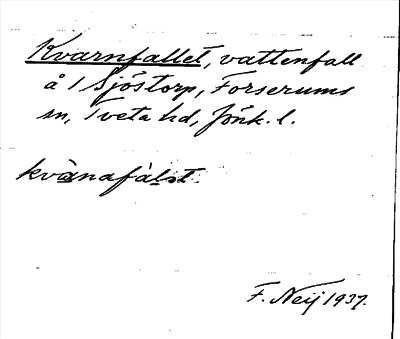 Kvarnfallet, vattenfall
å 1 Sjöstorp, Forserums
sn, Tveta hd, Jönk. l.
kvànafàlət.
F. Neij 1937.